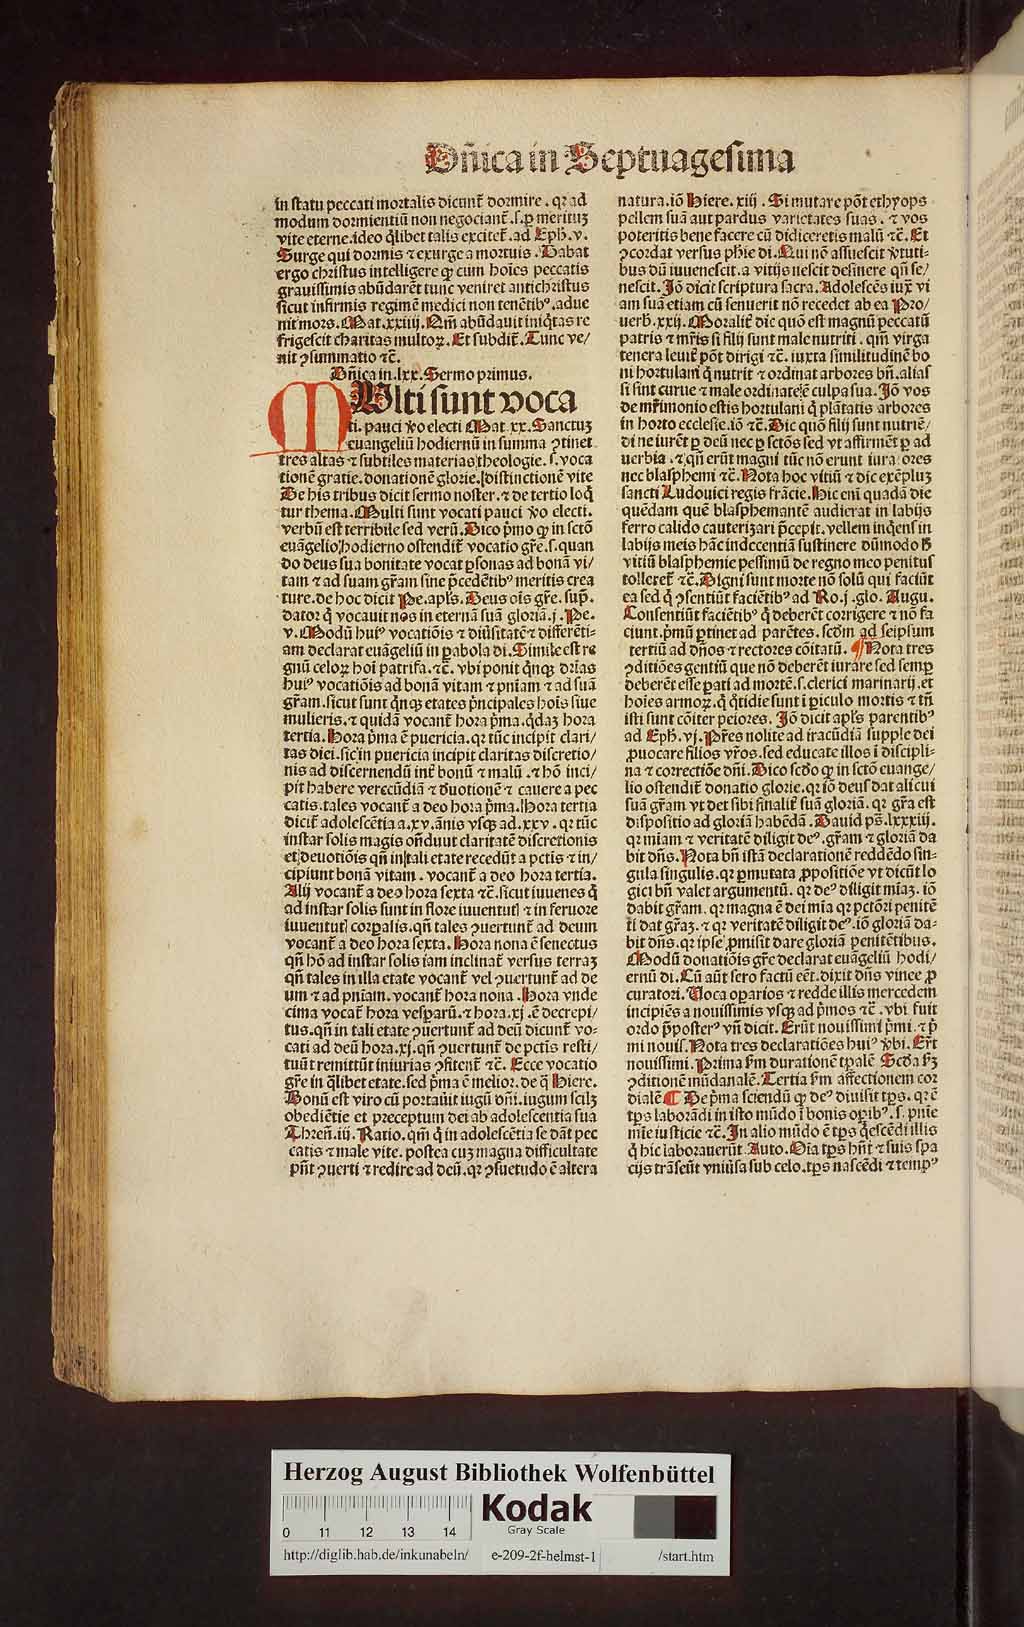 Dñica in Septuagesima
in statu peccati mortalis dicunt̃ dormire . qꝛ ad
modum dormientiũ non negociant̃ .s. ꝑ merituʒ
vite eterne .ideo q̃libet talis excitet̃ .ad Eph̃. v.
Surge qui dormis ⁊ exurge a mortuis . Habat
ergo christus intelligere ꝙ cum hoĩes peccatis
grauissimis abũdarẽt tunc veniret antichristus
sicut infirmis regimẽ medici non tenẽtibꝰ .adue
nit mors. Mat. xxiiij. Qm̃ abũdauit iniq̃tas re
frigescit charitas multoꝝ. Et subdit̃. Tunc ve/
nit ꝯsummatio ⁊c̃.
Dñica in .lxx. Sermo primus.
MUlti sunt voca
ti. pauci ꝟo electi Mat xx. Sanctuʒ
euangeliũ hodiernũ in summa ꝯtinet
tres altas ⁊ subtiles materias theologie. s. voca
tionẽ gratie. donationẽ glorie. distinctionẽ vite
De his tribus dicit sermo noster. ⁊ de tertio loq̃
tur thema. Multi sunt vocati pauci ꝟo electi.
verbũ est terribile sed verũ. Dico p̃mo ꝙ in sctõ
euãgelio hodierno ostendit̃ vocatio gr̃e. s. quan
do deus sua bonitate vocat ꝑsonas ad bonã vi/
tam ⁊ ad suam gr̃am sine p̃cedẽtibꝰ meritis crea
ture. de hoc dicit Pe. apl̃s. Deus oĩs gr̃e. sup̃.
dator q̃ vocauit nos in eternã suã gloriã. j. Pe.
v. Modũ huiꝰ vocatiõis ⁊ diũsitatẽ ⁊ differẽti-
am declarat euãgeliũ in ꝑabola di. Simile est re
gnũ celoꝝ hoĩ patrifa. ⁊c̃. vbi ponit q̃nqꝫ dr̃ias
huiꝰ vocatiõis ad bonã vitam ⁊ pñiam ⁊ ad suã
gr̃am. sicut sunt q̃nqꝫ etates p̃ncipales hoĩs siue
mulieris. ⁊ quidã vocant̃ hora p̃ma. q̃daʒ hora
tertia. Hora p̃ma ẽ puericia. qꝛ tũc incipit clari/
tas diei. sic in puericia incipit claritas discretio/
nis ad discernendũ int̃ bonũ ⁊ malũ . ⁊ hõ inci/
pit habere verecũdiã ⁊ d̾uotionẽ ⁊ cauere a pec
catis. tales vocant̃ a deo hora p̃ma. Hora tertia
dicit̃ adolescẽtia a. xv. ãnis vsqꝫ ad. xxv . qꝛ tũc
instar solis magis oñduut claritatẽ discretionis
et deuotiõis qñ in tali etate recedũt a pctis ⁊ in/
cipiunt bonã vitam . vocant̃ a deo hora tertia.
Alij vocant̃ a deo hora sexta ⁊c̃. sicut iuuenes q̃
ad instar solis sunt in flore iuuentut̃ ⁊ in feruore
iuuentut̃ corꝑalis. qñ tales ꝯuertunt̃ ad deum
vocant̃ a deo hora sexta. Hora nona ẽ senectus
qñ hõ ad instar solis iam inclinat̃ versus terraʒ
qñ tales in illa etate vocant̃ vel ꝯuertunt̃ ad de
um ⁊ ad pnĩam. vocant̃ hora nona . Hora vnde
cima vocat̃ hora vesꝑarũ. ⁊ hora. xj . ẽ decrepi/
tus. qñ in tali etate ꝯuertunt̃ ad deũ dicunt̃ vo-
cati ad deũ hora. xj. qñ ꝯuertunt̃ de pctĩs resti/
tuũt remittũt iniurias ꝯfitent̃ ⁊c̃. Ecce vocatio
gr̃e in q̃libet etate. sed p̃ma ẽ melior. de q̃ Hiere.
Bonũ est viro cũ portauit iugũ dñi. iugum scilʒ
obediẽtie et preceptum dei ab adolescentia sua
Threñ. iij. Ratio. qm̃ q̃ in adolescẽtia se dãt pec
catis ⁊ male vite. postea cuʒ magna difficultate
pñt ꝯuerti ⁊ redire ad deũ. qꝛ ꝯsuetudo ẽ altera
natura. iõ Hiere. xiij . Si mutare põt ethyops
pellem suã aut pardus varietates suas . ⁊ vos
poteritis bene facere cũ didiceretis malũ ⁊c̃. Et
ꝯcordat versus ph̃ie di. Qui nõ assuescit ꝟtuti-
bus dũ iuuenescit. a vitijs nescit desinere qñ se/
nescit. Iõ dicit scriptura sacra. Adolescẽs iux̃ vi
am suã etiam cũ senuerit nõ recedet ab ea Pro/
uerb̃. xxij. Moralit̃ dic quõ est magnũ peccatũ
patris ⁊ mr̃is si filij sunt male nutriti . qñ virga
tenera leuit̃ põt dirigi ⁊c̃. iuxta similitudinẽ bo
ni hortulani q̃ nutrit ⁊ ordinat arbores bñ. alias
si sint curue ⁊ male ordinate ẽ culpa sua. Iõ vos
de mr̃imonio estis hortulani q̃ plãtatis arbores
in horto ecclesie. iõ ⁊c̃. Dic quõ filij sunt nutriẽ/
di ne iurẽt ꝑ deũ nec ꝑ sctõs sed vt affirmẽt ꝑ ad
uerbia . ⁊ qñ erũt magni tũc nõ erunt iuratores
nec blasphemi ⁊c̃. Nota hoc vitiũ ⁊ dic exẽpluʒ
sancti Ludouici regis frãcie. Hic eni quadã die
quẽdam quẽ blasphemantẽ audierat in labijs
ferro calido cauterizari p̃cepit. vellem inq̃ens in
labijs meis hãc indecentiã sustinere dũmodo h̾
vitiũ blasphemie pessimũ de regno meo penitus
tolleret̃ ⁊c̃. Digni sunt morte nõ solũ qui faciũt
ea sed q̃ ꝯsentiũt faciẽtibꝰ ad Ro. j. glo. Augu.
Consentiũt faciẽtibꝰ q̃ deberẽt corrigere ⁊ nõ fa
ciunt. p̃mũ ꝑtinet ad parẽtes. scdm̃ ad seipsum
tertiũ ad dños ⁊ rectores cõitatũ. ¶ Nota tres
ꝯditiões gentiũ que nõ deberẽt iurare sed semꝑ
deberẽt esse ꝑati ad mortẽ. s. clerici marinarij. et
hoĩes armoꝝ. q̃ q̃tidie sunt ĩ ꝑiculo mortis ⁊ tñ
isti sunt cõiter peiores. Iõ dicit apl̃s parentibꝰ
ad Eph̃. vj. Pr̃es nolite ad iracũdiã supple dei
ꝓuocare filios vr̃os. sed educate illos ĩ discipli-
na ⁊ correctiõe dñi. Dico scd̃o ꝙ in sctõ euange/
lio ostendit̃ donatio glorie. qꝛ iõ deus dat alicui
suã gr̃am vt det sibi finalit̃ suã gloriã. qꝛ gr̃a est
dispositio ad gloriã habẽdã. Dauid ps̃. lxxxiij.
qꝛ miãm ⁊ veritatẽ diligit deꝰ. gr̃am ⁊ gloriã da
bit dñs. Nota bñ istã declarationẽ reddẽdo sin-
gula singulis. qꝛ ꝑmutata ꝓpositiõe vt dicũt lo
gici bñ valet argumentũ. qꝛ deꝰ diligit miãʒ. iõ
dabit gr̃am. qꝛ magna ẽ dei mĩa qꝛ pctõri penitẽ
ti dat gr̃aʒ. ⁊ qꝛ veritatẽ diligit deꝰ. iõ gloriã da-
bit dñs. qꝛ ipse ꝓmisit dare gloriã penitẽtibus.
Modũ donatiõis gr̃e declarat euãgeliũ hodi/
ernũ di. Cũ aũt sero factũ eẽt. dixit dñs vinee ꝓ
curatori. Uoca oꝑarios ⁊ redde illis mercedem
incipiẽs a nouissimis vsqꝫ ad p̃mos ⁊c̃ . vbi fuit
ordo p̃posterꝰ vñ dicit. Erũt nouissimi p̃mi. ⁊ p̃
mi nouis̃. Nota tres declaratiões huiꝰ ꝟbi. Er̃t
nouissimi. Prima s̃m durationẽ tꝑalẽ Scd̃a s̃ʒ
ꝯditionẽ mũdanalẽ. Tertia s̃m affectionem cor
dialẽ ¶ De p̃ma sciendũ ꝙ deꝰ diuisit tꝑs. qꝛ ẽ
tꝑs laborãdi in isto mũdo ĩ bonis oꝑibꝰ. s. pnĩe
mĩe iusticie ⁊c̃. In alio mũdo ẽ tꝑs q̃escẽdi illis
q̃ hic laborauerũt. Auto. Oĩa tꝑs hñt ⁊ suis spa
cijs trãseũt vniũsa sub celo. tꝑs nascẽdi ⁊ tempꝰ
Herzog August Bibliothek Wolfenbüttel
Kodak
Gray Scale
0 11 12 13 14
http://diglib.hab.de/inkunabeln/ e-209-2f-helmst-1 /start.htm